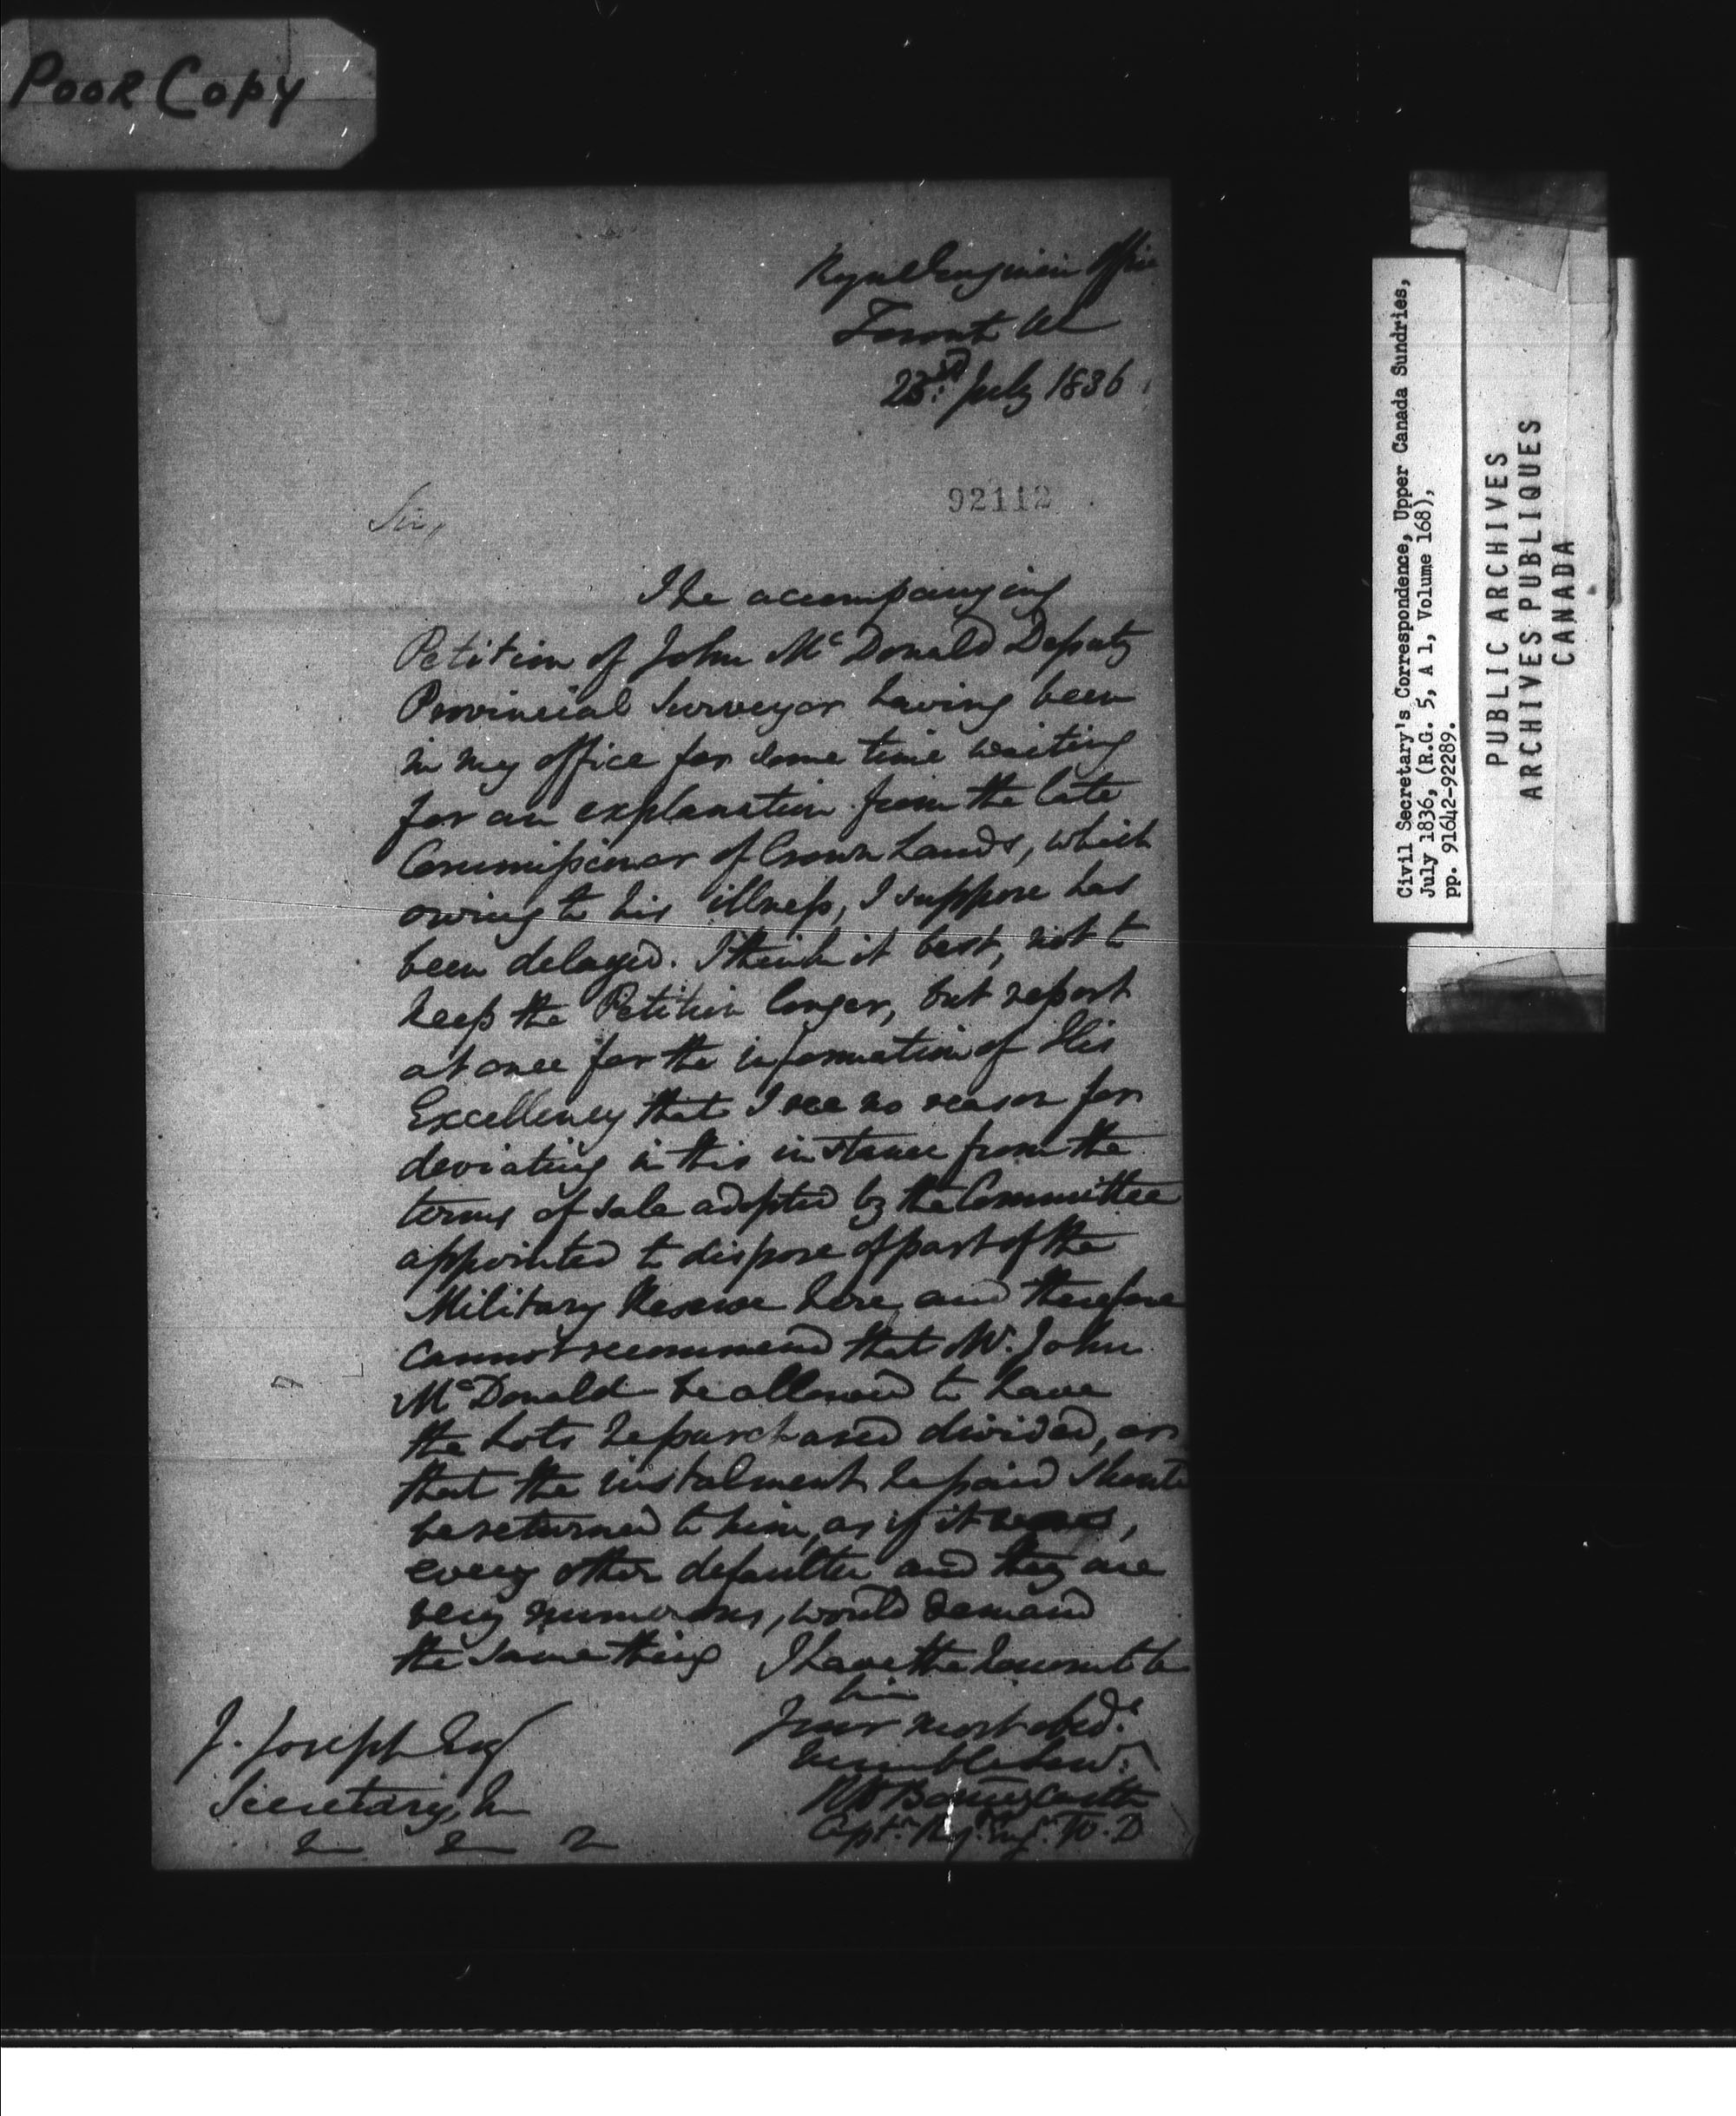 Poor Copy
Royal Engineer Office
Toronto UC
23rd July 1836
92112
Sir,
The accompanying
Petition of John McDonald Deputy
Provincial Surveyor having been
in my office for some time waiting
for an explanation from the late
Commissioner of Crown Lands, which
owing to his illness, I suppose has
been delayed. I think it best, not to
keep the Petition longer, but report
at once for the information of His
Excellency that I see no reason for
deviating in this instance from the
terms of sale adopted by the Committee
appointed to dispose of part of the
Military Reserve here, and therefore
cannot recommend that Mr. John
McDonald be allowed to have
the Lots he purchased divided, or
that the instalment he paid should
be returned to him, as if it
every other defaulter and they are
very numerous, would demand
the same thing I have the honour to be
Sir
Your most obedt.
humble Servt.
RH Bonnycastle
Captn. Rl. Engrs. W.D
J. Joseph Esq
Secretary &c
&c &c &c
Civil Secretary's Correspondence, Upper Canada Sundries,
July 1836, (R.G. 5, A 1, Volume 168),
pp. 91642-92289.
PUBLIC ARCHIVES
ARCHIVES PUBLIQUES
CANADA